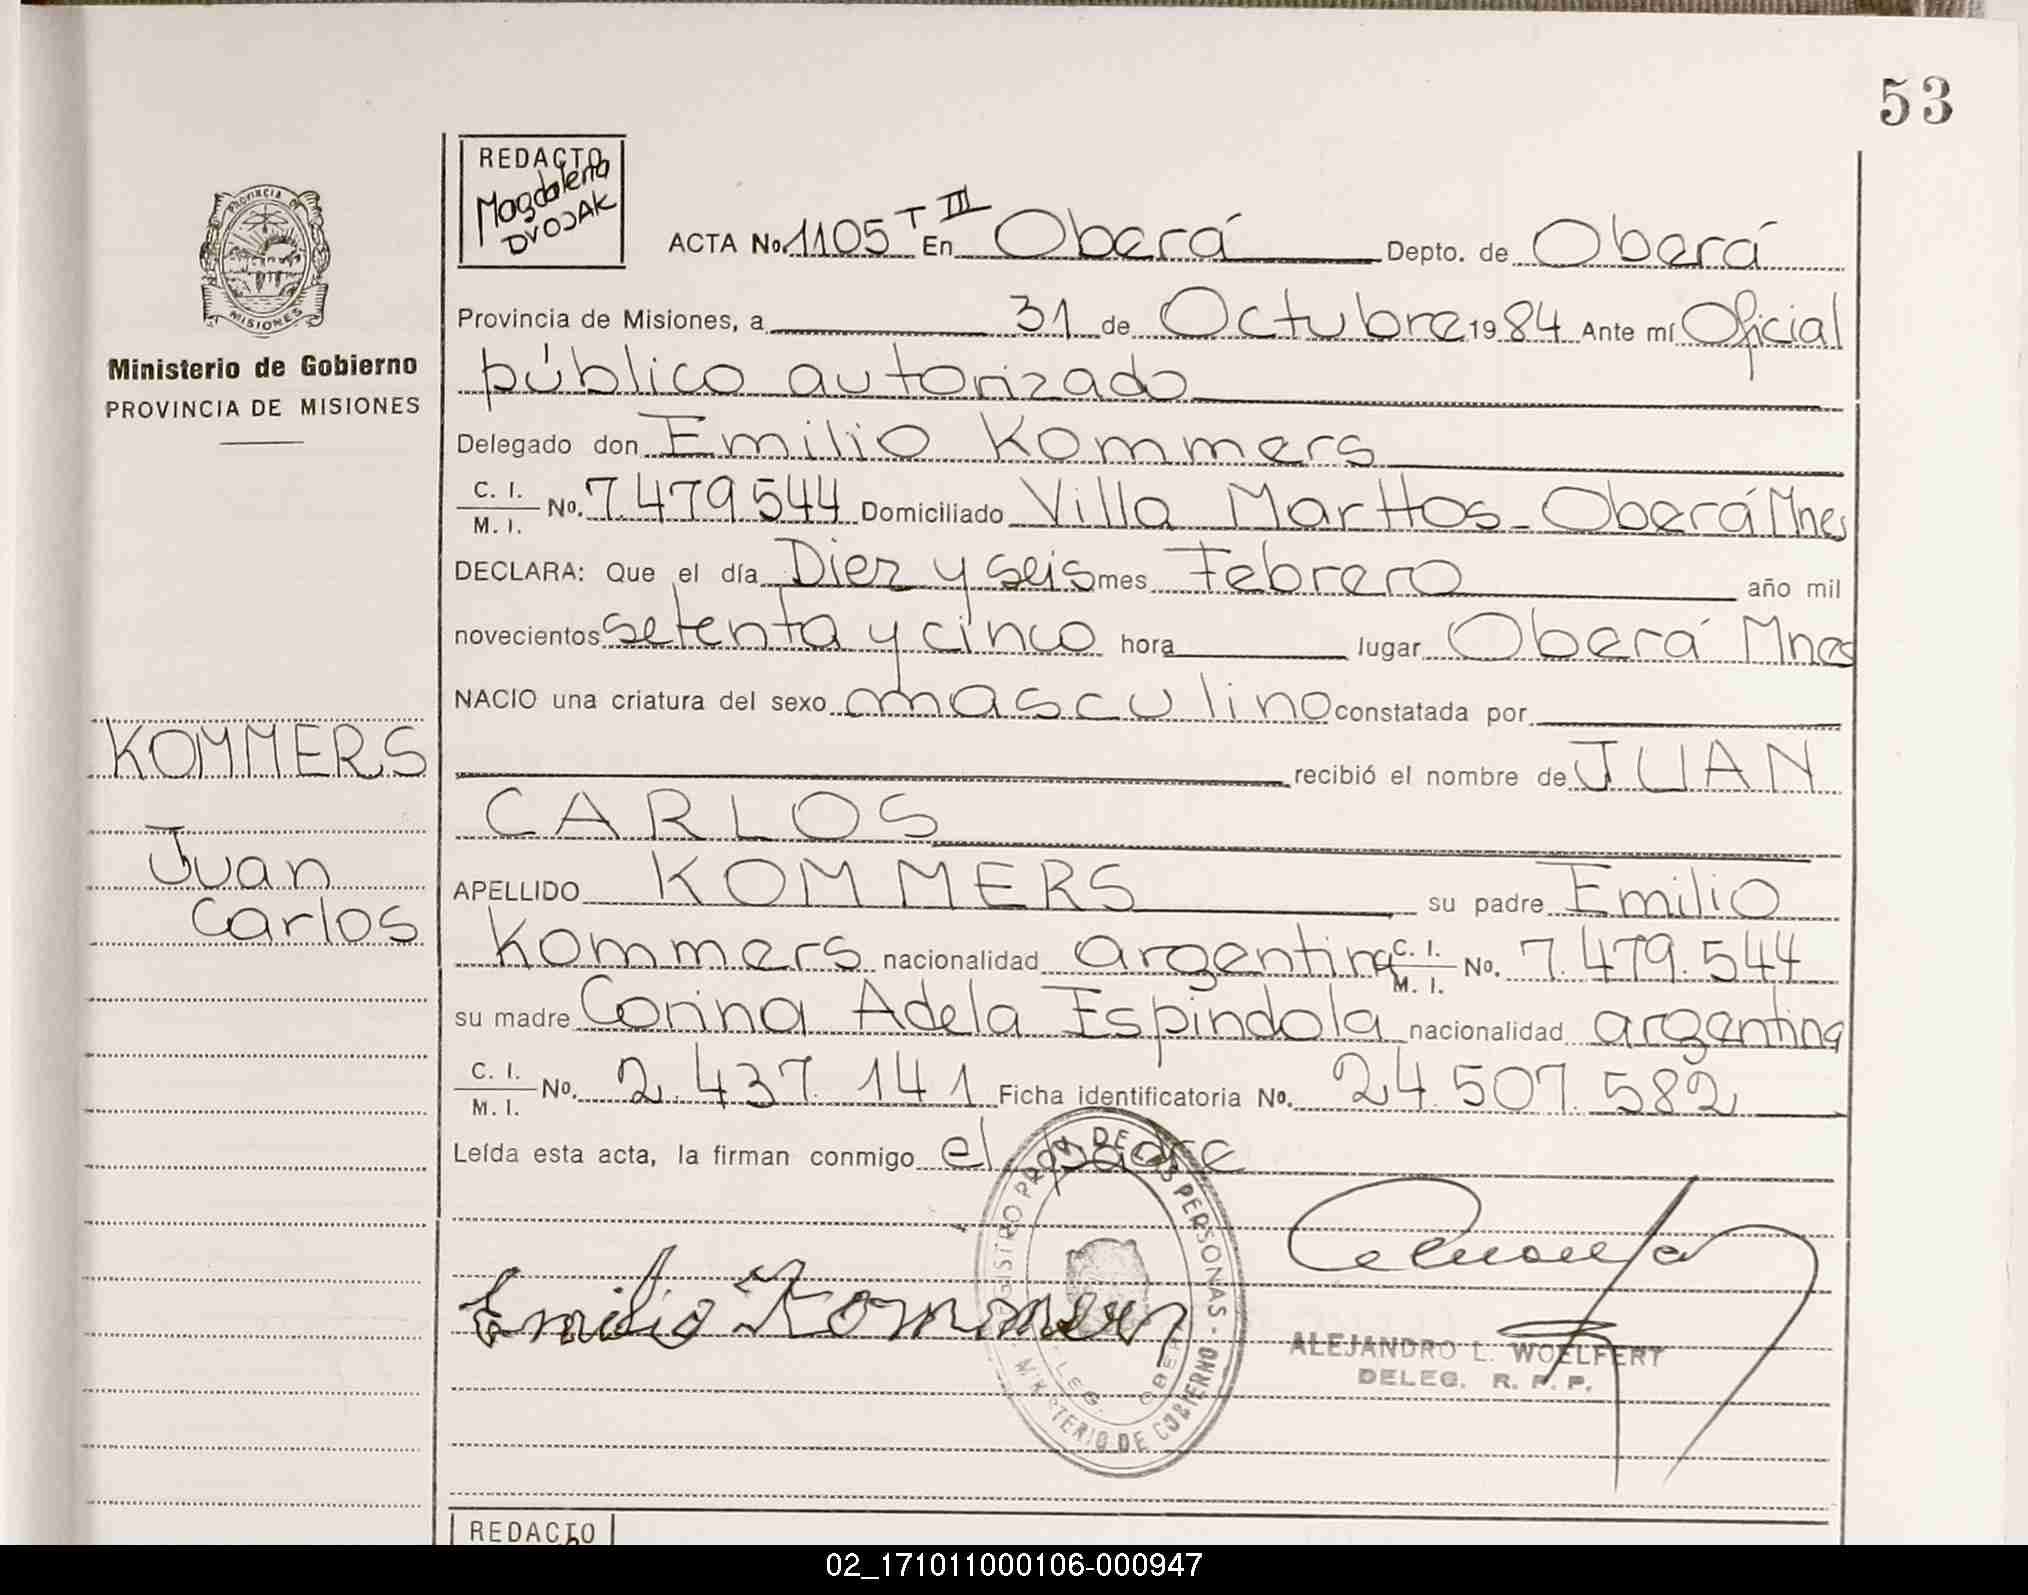 53
REDACTO
Magdalena
DVOJAK
PROVINCIA DE
MISIONES
Ministerio de Gobierno
PROVINCIA DE MISIONES
ACTA No. 1105 T III En Oberá Depto. de Oberá
Provincia de Misiones, a 31 de Octubre 1984 Ante mí Oficial
público autorizado
Delegado don Emilio Kommers
C. I.
M. I. No. 7.479.544 Domiciliado Villa Marttos - Oberá Mnes
DECLARA: Que el día Diez y seis mes Febrero año mil
novecientos setenta y cinco hora lugar Oberá Mnes
NACIO una criatura del sexo masculino constatada por
recibió el nombre de JUAN
CARLOS
APELLIDO KOMMERS su padre Emilio
Kommers nacionalidad argentina C. I.
M. I. No. 7.479.544
su madre Corina Adela Espindola nacionalidad argentina
C. I.
M. I. No. 2.437.141 Ficha identificatoria No. 24.507.582
Leída esta acta, la firman conmigo el padre
KOMMERS
Juan
Carlos
Emilio Kommers
REGISTRO PROV. DE LAS PERSONAS - MINISTERIO DE GOBIERNO
DELEG. OBERA
ALEJANDRO L. WOELFERT
DELEG. R. P. P.
REDACTO
02_171011000106-000947